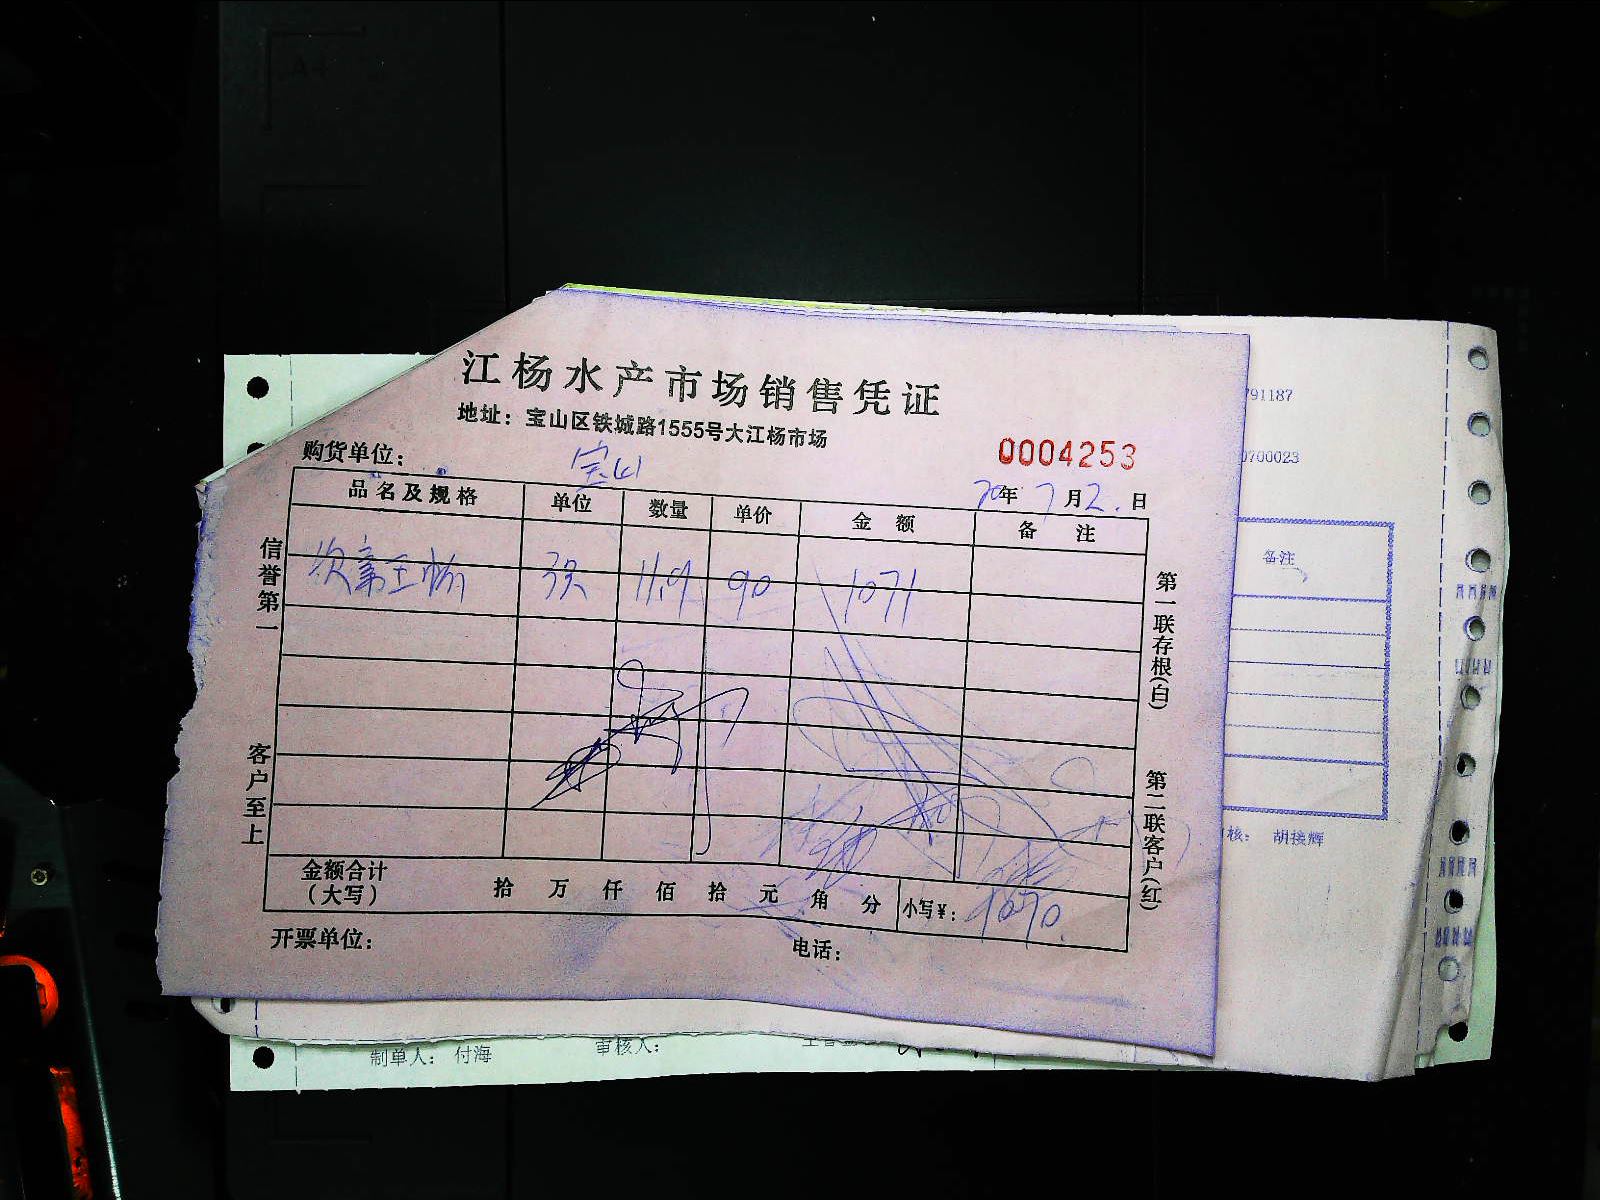 江杨水产市场销售凭证
地址：宝山区铁城路1555号大江杨市场
0004253
购货单位： 宝山
20年 7月2.日
品名及规格 单位 数量 单价 金额 备注
11.9 90 1071
信誉第一
客户至上
第一联存根(白)
第二联客户(红)
金额合计
(大写) 拾 万 仟 佰 拾 元 角 分 小写¥： 1070.
开票单位： 电话：
791187
0700023
备注
核： 胡接辉
制单人： 付海 审核人：